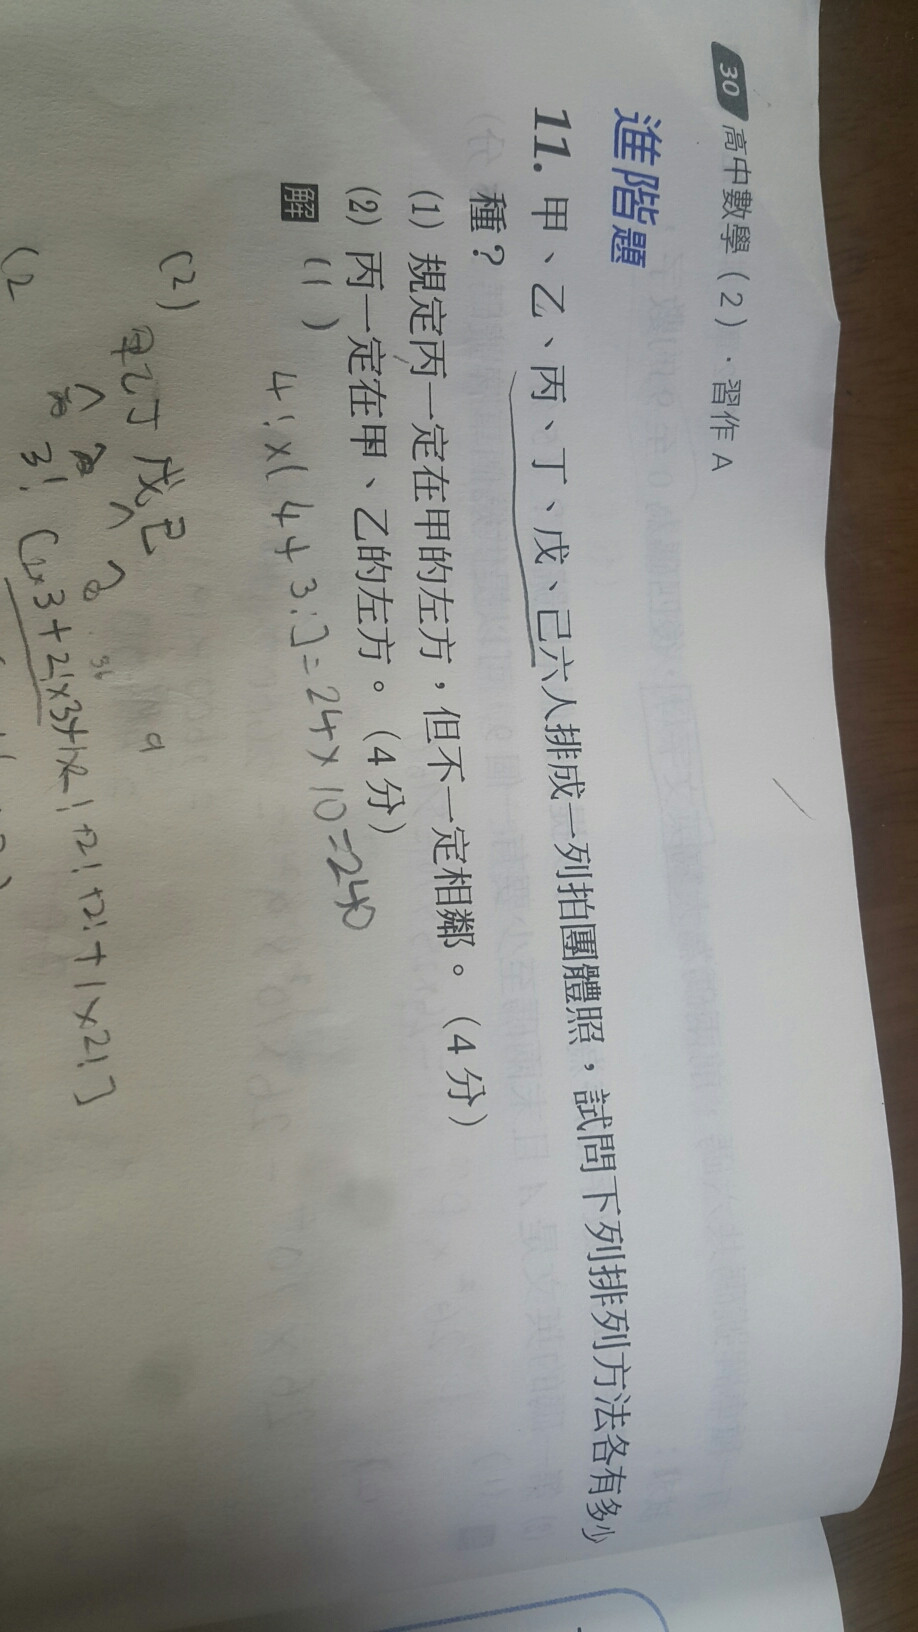 30 高中數學（2）．習作 A
進階題
11. 甲、乙、丙、丁、戊、己六人排成一列拍團體照，試問下列排列方法各有多少
種？
(1) 規定丙一定在甲的左方，但不一定相鄰。（4 分）
(2) 丙一定在甲、乙的左方。（4 分）
解 (1)
4!×(4+3!)=24×10=240
(2)
甲乙丁戊己
3!